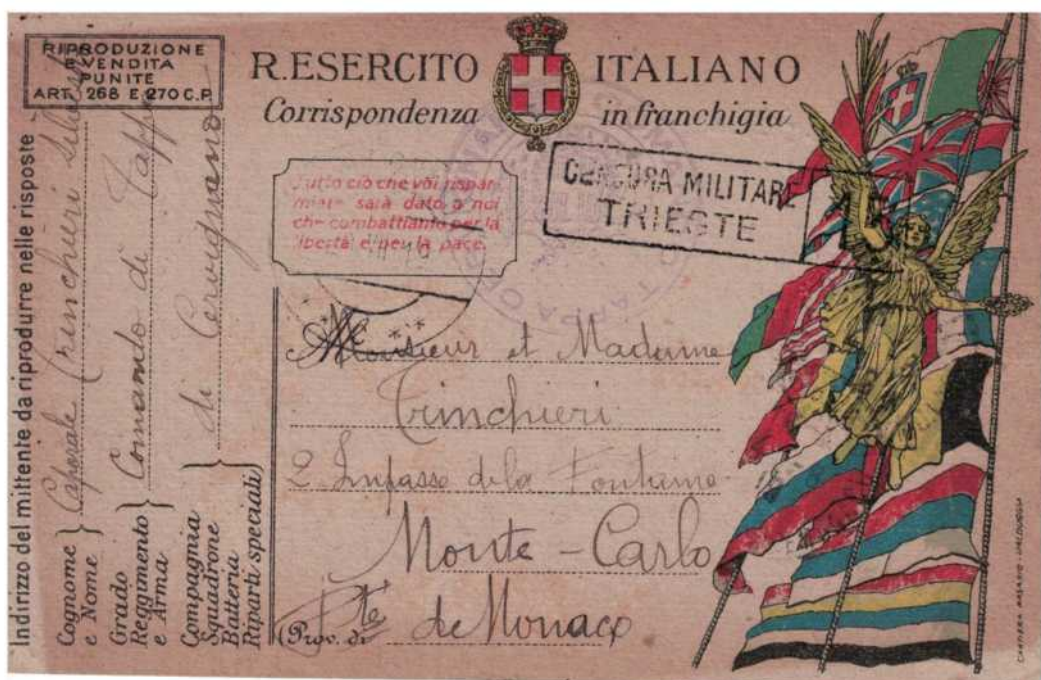 RIPRODUZIONE
E VENDITA
PUNITE
ART. 268 E 270 C.P.
R. ESERCITO ITALIANO
Corrispondenza in franchigia
Tutto ciò che voi rispar-
miate sarà dato a noi
che combattiamo per la
libertà e per la pace.
CENSURA MILITARE
TRIESTE
TAPPA
Monsieur et Madame
Trinchieri
2 Impasse de la Fontaine
Monte-Carlo
(Prov. di Pte de Monaco
Indirizzo del mittente da riprodurre nelle risposte
Cognome
e Nome } Caporale Trinchieri
Grado
Reggimento
e Arma } Comando di Tappa
Compagnia
Squadrone
Batteria
Riparti speciali) } di Cervignano